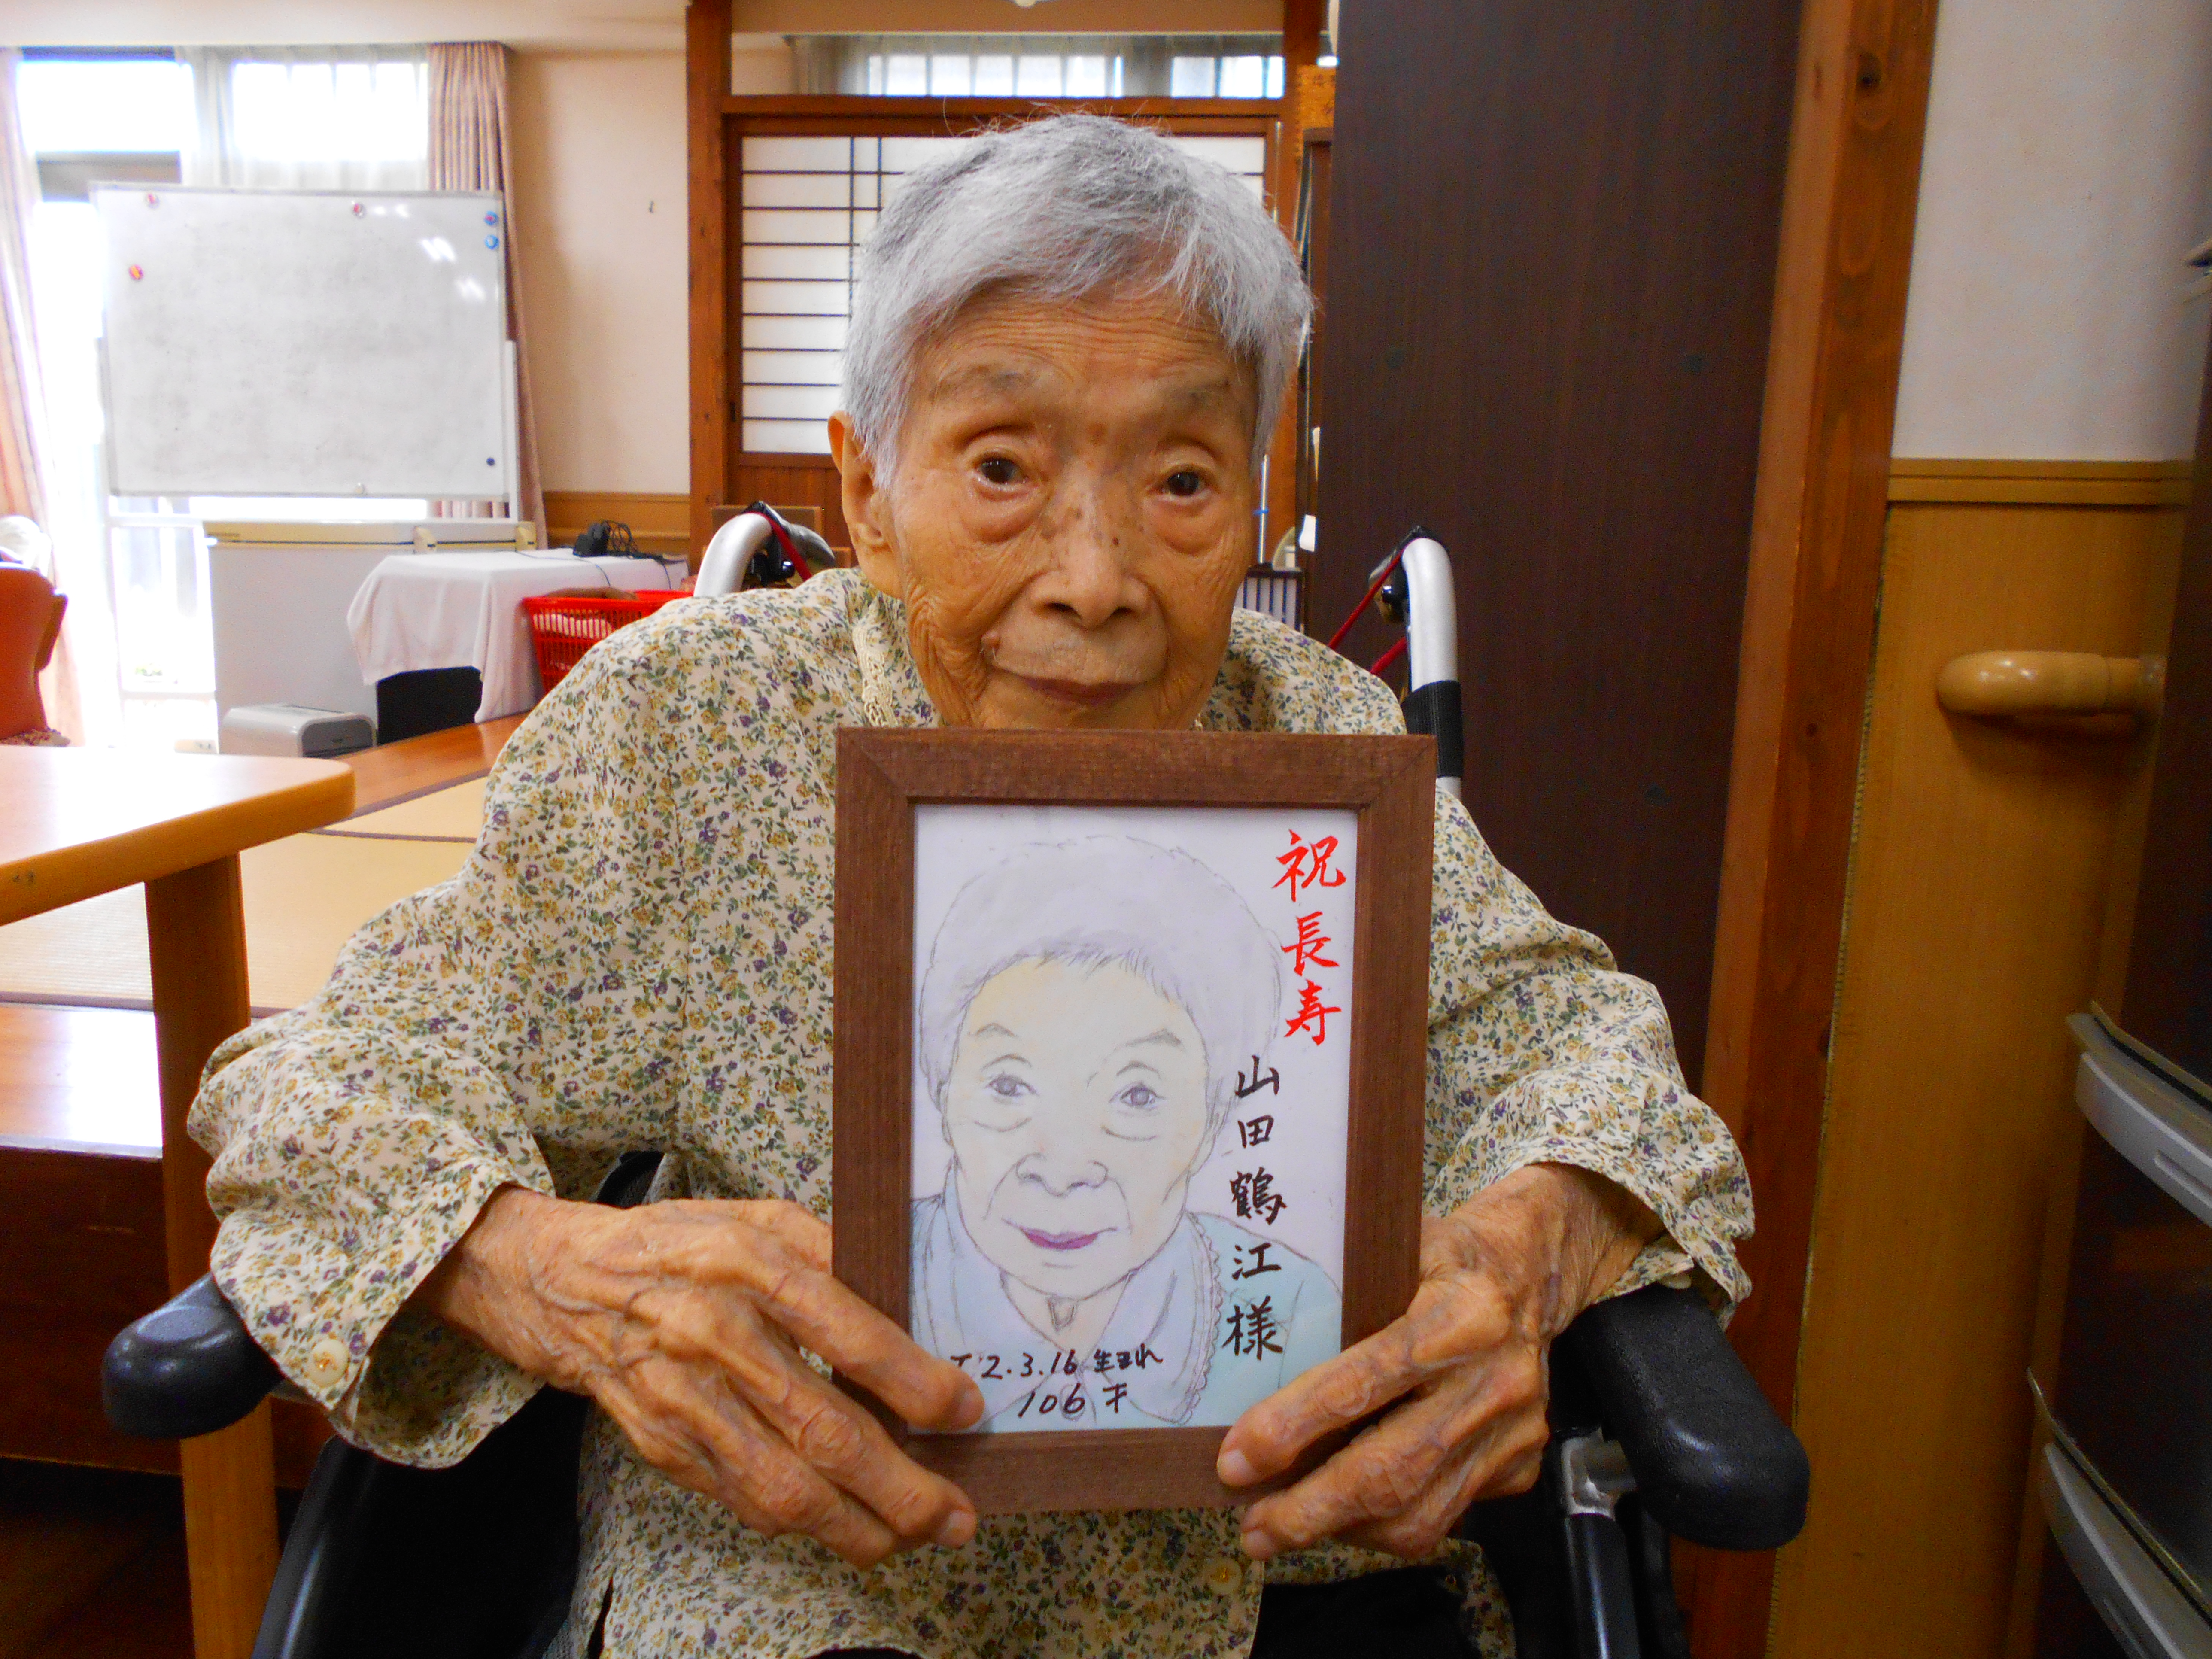 祝長寿
山田鶴江様
T2.3.16生まれ
106才